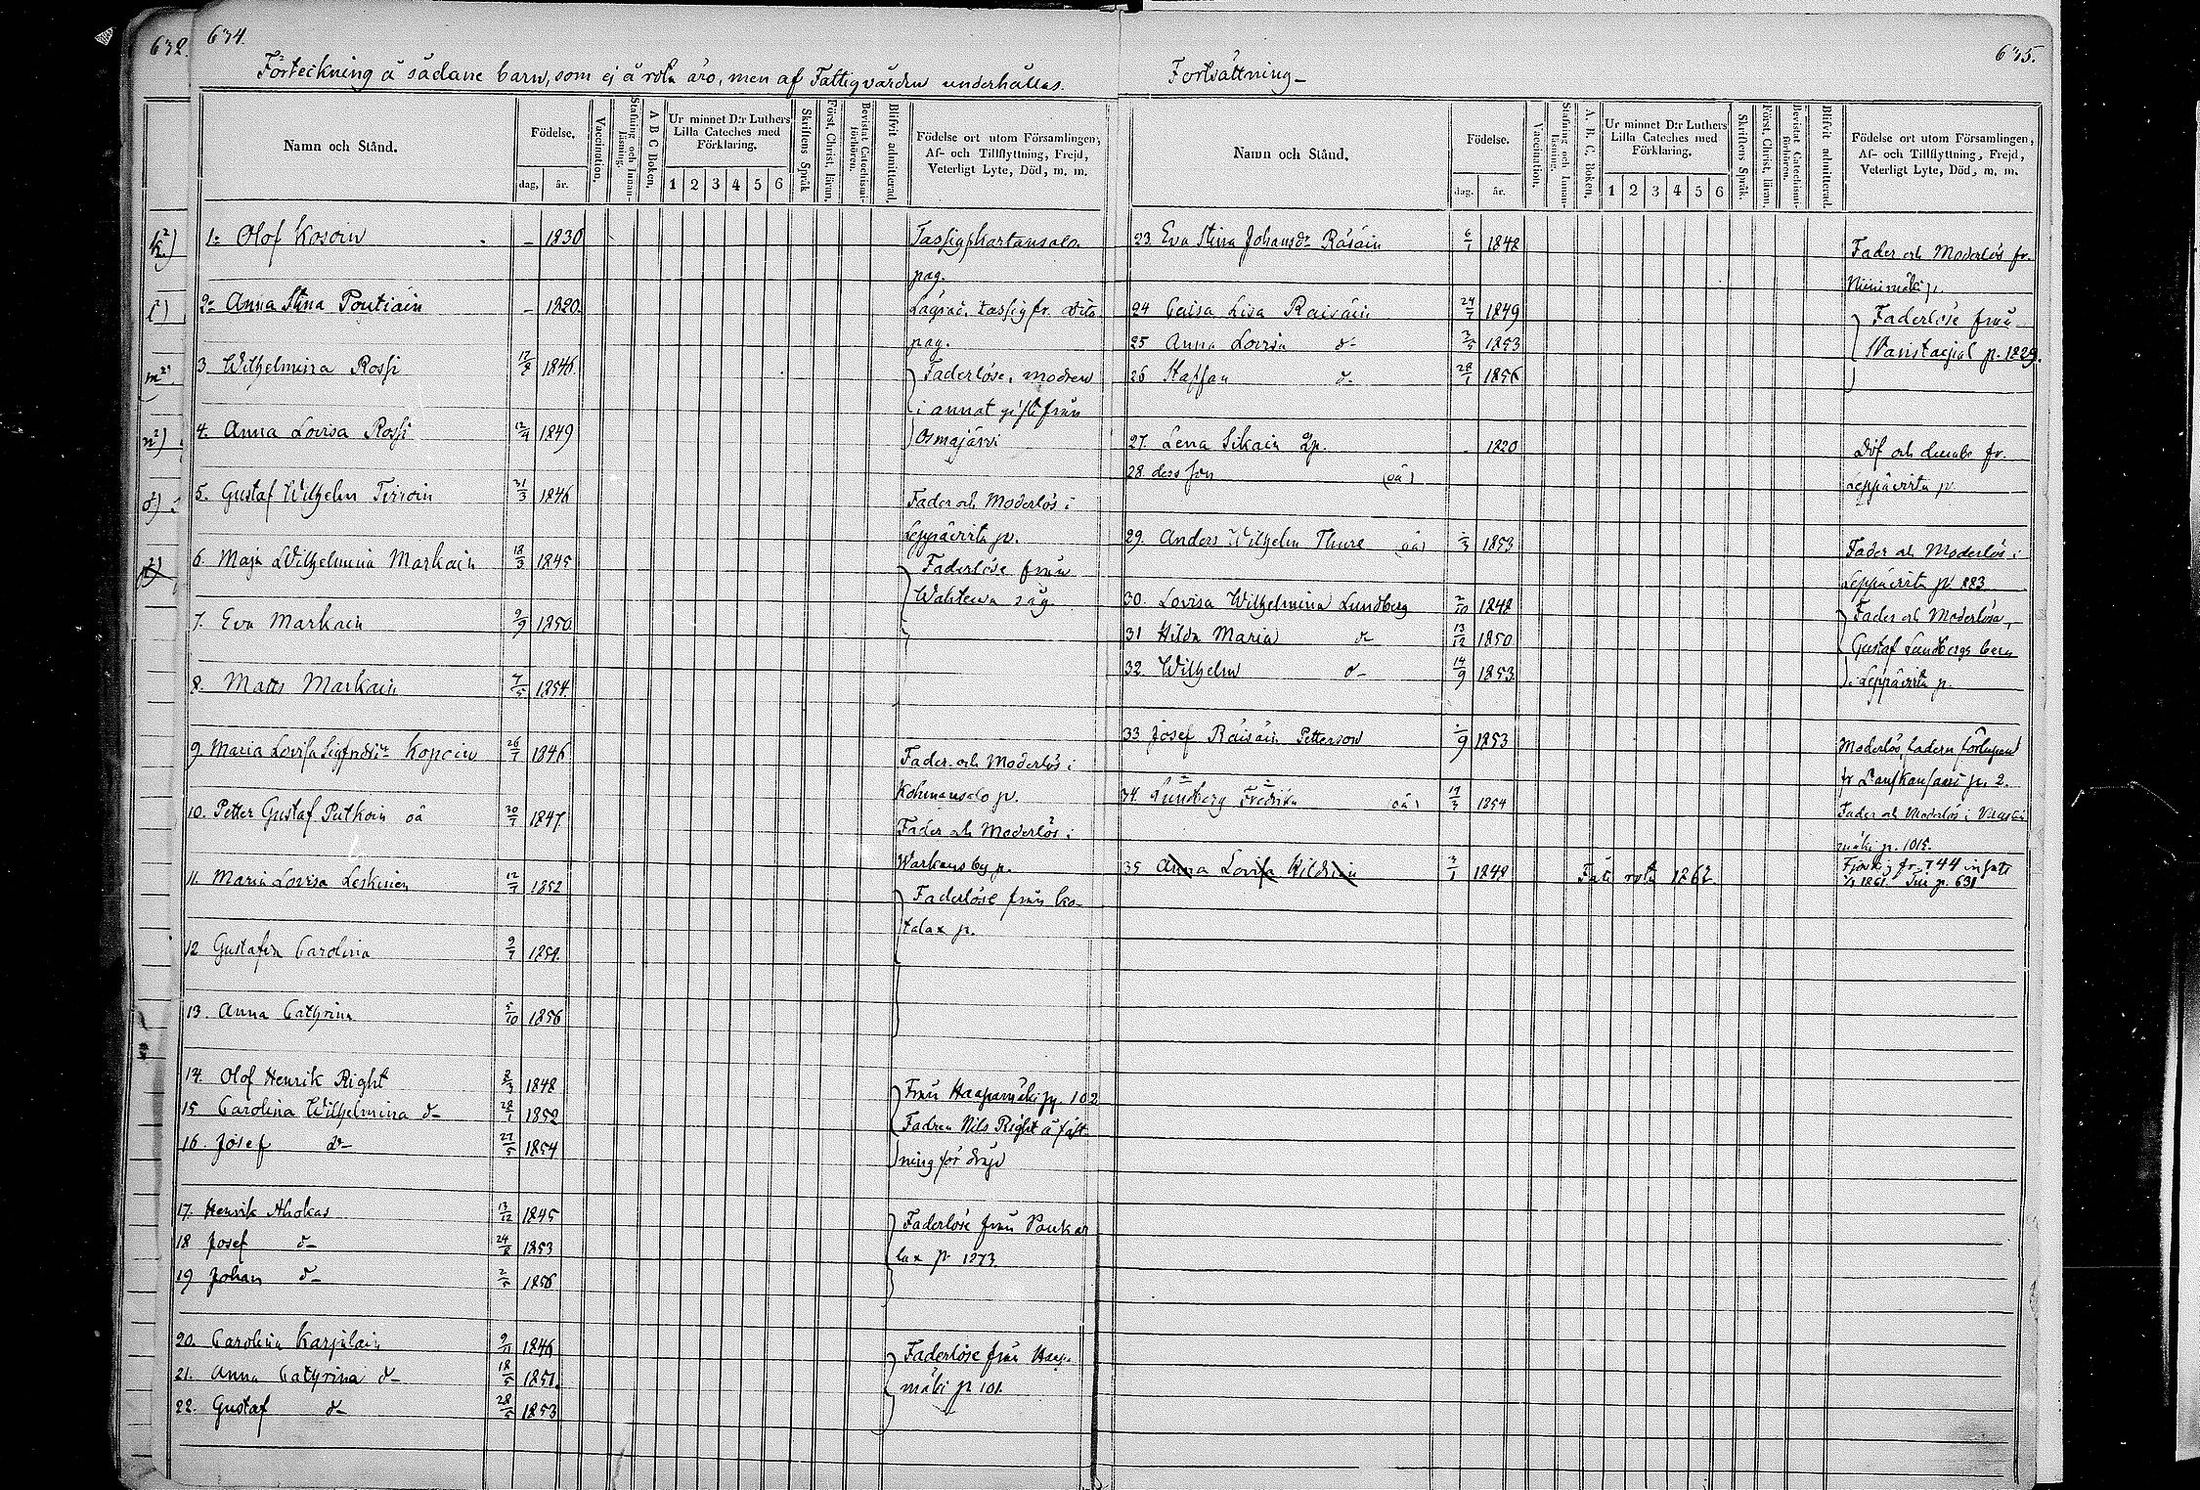 632.
634.
Förteckning å sådane barn, som ej å rota äro, men af Fattigvården underhållas.
Namn och Stånd.
Födelse.
dag, år.
Vaccination.
Stafning och Innanläsning.
A B C Boken.
Ur minnet D:r Luthers Lilla Cateches med Förklaring.
1 2 3 4 5 6
Skriftens Språk
Först. Christ. läran.
Bevistat Catechismiförhören.
Blifvit admitterad.
Födelse ort utom Församlingen, Af- och Tillflyttning, Frejd, Veterligt Lyte, Död, m. m.
1. Olof Kosoin – 1830
pag.
2. Anna Stina Poutiain – 1820.
pag.
3. Wilhelmina Rossi 1846 Faderlöse, modren
i annat gifte från
4. Anna Lovisa Rossi 12/4 1849 Osmajärvi
5. Gustaf Wilhelm Tirroin 31/3 1846 Fader och Moderlös i
Leppävirta p.
6. Maja Wilhelmina Markain 18/3 1845 Faderlöse från
Wahtewa såg
7. Eva Markain 9/9 1850
8. Matts Markain 4/5 1854.
9 Maria Lovisa Sigfridsdr Kopoin 26/7 1846 Fader och Moderlös i
Kohmansalo p.
10. Petter Gustaf Putkoin oä 30/7 1847 Fader och Moderlös i
Warkaus by p.
11. Maria Lovisa Leskinen 12/7 1852 Faderlöse från Ko-
talax p.
12 Gustafva Carolina 9/7 1854.
13. Anna Cathrina 5/10 1856
14. Olof Henrik Right 8/3 1848 Från Haapamäki p. 102
15 Carolina Wilhelmina d– 28/1 1852 Fadren Nils Right å fäst-
16. Josef d– 27/5 1854 ning för dråp
17. Henrik Ahokas 13/12 1845 Faderlöse från Paukar
18 Josef d– 24/8 1853 lax p. 1273.
19 Johan d– 2/5 1856
20. Carolina Karpilain 9/11 1846 Faderlöse från Haap-
21. Anna Cathrina d– 18/5 1851. mäki p. 101.
22. Gustaf d– 28/5 1853
635.
Fortsättning –
Namn och Stånd.
Födelse.
dag. år.
Vaccination.
Stafning och Innanläsning.
A. B. C. Boken.
Ur minnet D:r Luthers Lilla Cateches med Förklaring.
1 2 3 4 5 6
Skriftens Språk.
Först. Christ. läran.
Bevistat Catechismiförhören.
Blifvit admitterad.
Födelse ort utom Församlingen, Af- och Tillflyttning, Frejd, Veterligt Lyte, Död, m. m.
23. Eva Stina Johansdr Räsäin 6/1 1848 Fader och Moderlös fr.
Niinimäki p.
24 Caisa Lisa Raisäin 24/7 1849 Faderlöse från
25 Anna Lovisa d– 3/5 1853 p. 1229.
26 Staffan d– 28/1 1856
27. Lena Sikain Qp. – 1820 Döf och dumb fr.
28. dess son (oä) Leppävirta p.
29 Anders Wilhelm Thure oä) 1853 Fader och Moderlös i
Leppävirta p. 883
30. Lovisa Wilhelmina Lundberg 2/10 1848 Fader och Moderlösa,
31 Hilda Maria d– 13/12 1850 Gustaf Lundbergs barn
32. Wilhelm d– 14/9 1853 i Leppävirta p.
33 Josef Räisäin Petterson 1853 Moderlös, fadern förlupen
p. 2.
34. Lundberg Fredrika oä) 1854 Fader och Moderlös i
mäki p. 1015.
35 Anna Lovisa 3/1 1848 rota 1862. p. 631